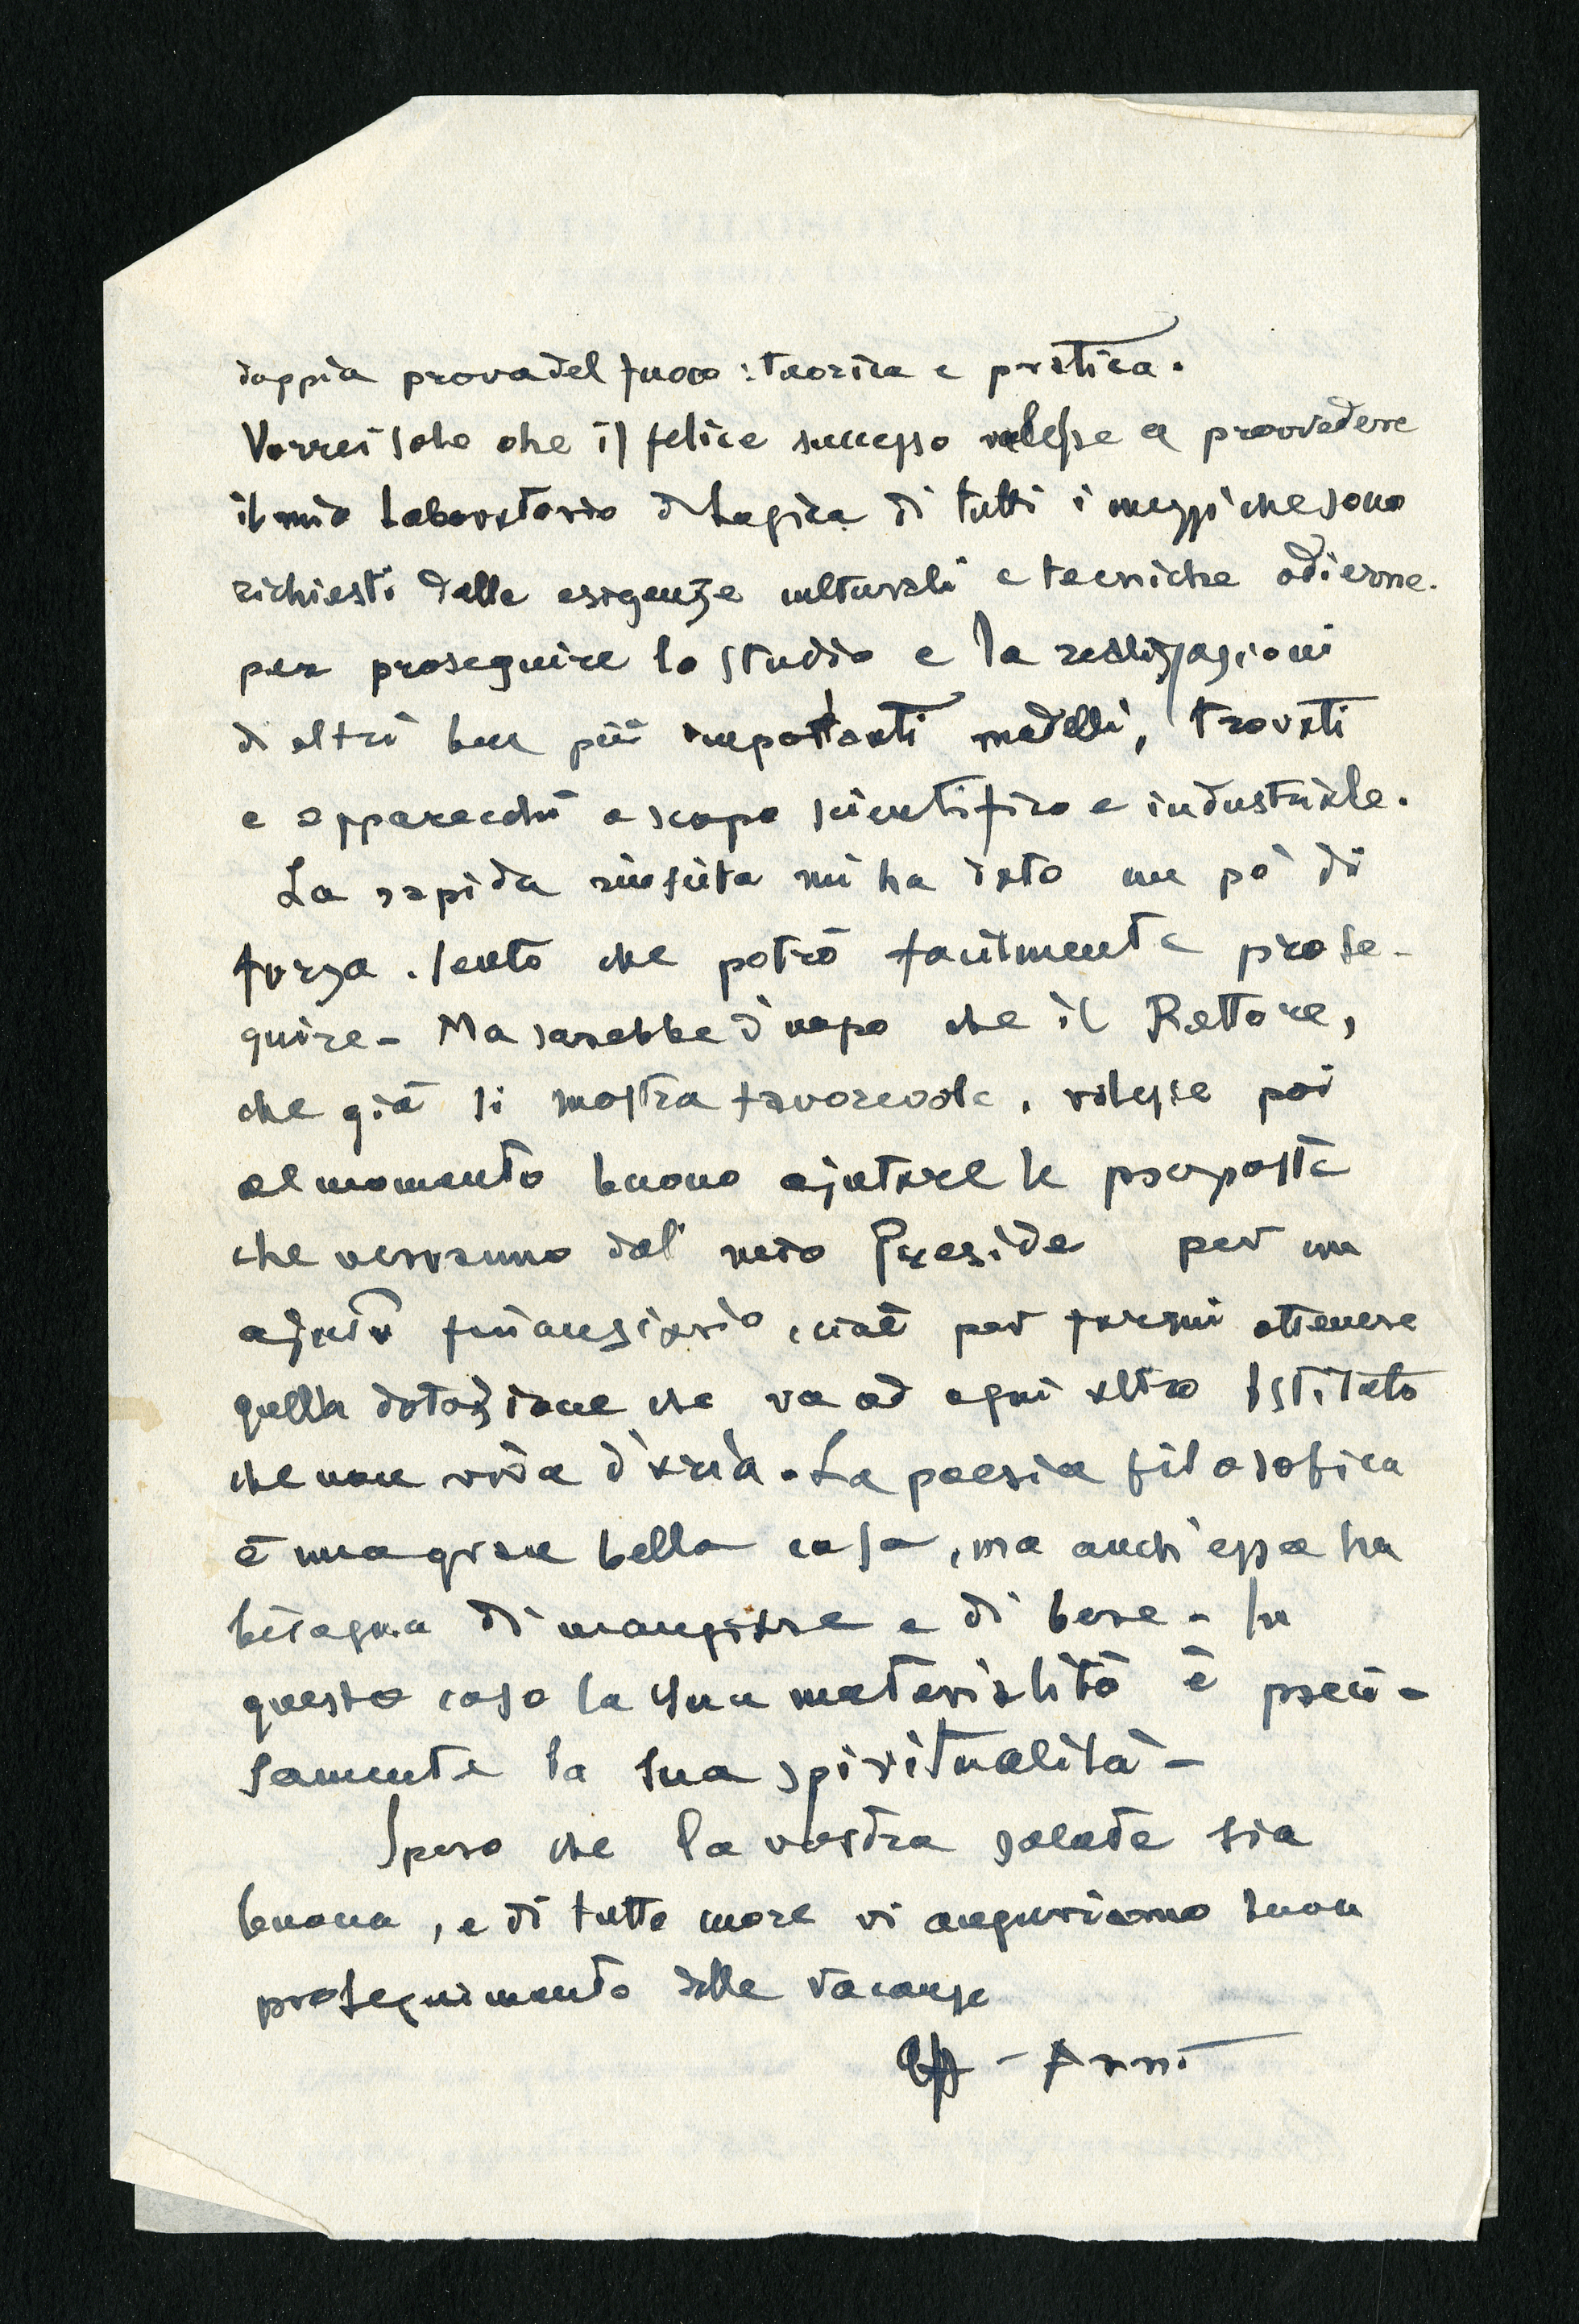 doppia prova del fuoco: teorica e pratica.
Vorrei solo che il felice successo valesse a provvedere
il mio Laboratorio di Logica di tutti i mezzi che sono
richiesti dalle esigenze culturali e tecniche odierne.
per proseguire lo studio e la realizzazioni
di altri ben più importanti modelli, trovati
e apparecchi a scopo scientifico e industriale.
La rapida riuscita mi ha dato un pò di
forza. Sento che potrò facilmente prose-
guire - Ma sarebbe d'uopo che il Rettore,
che già si mostra favorevole, volesse poi
al momento buono ajutare le proposte
che verranno dal mio Preside per un
ajuto finanziario, cioè per farmi ottenere
quella dotazione che va ad ogni altro Istituto
che non viva d'aria. La poesia filosofica
è una gran bella cosa, ma anch'essa ha
bisogno di mangiare e di bere - In
questo caso la sua materialità è preci-
samente la sua spiritualità -
Spero che la vostra salute sia
buona, e di tutto cuore vi auguriamo buon
proseguimento delle vacanze